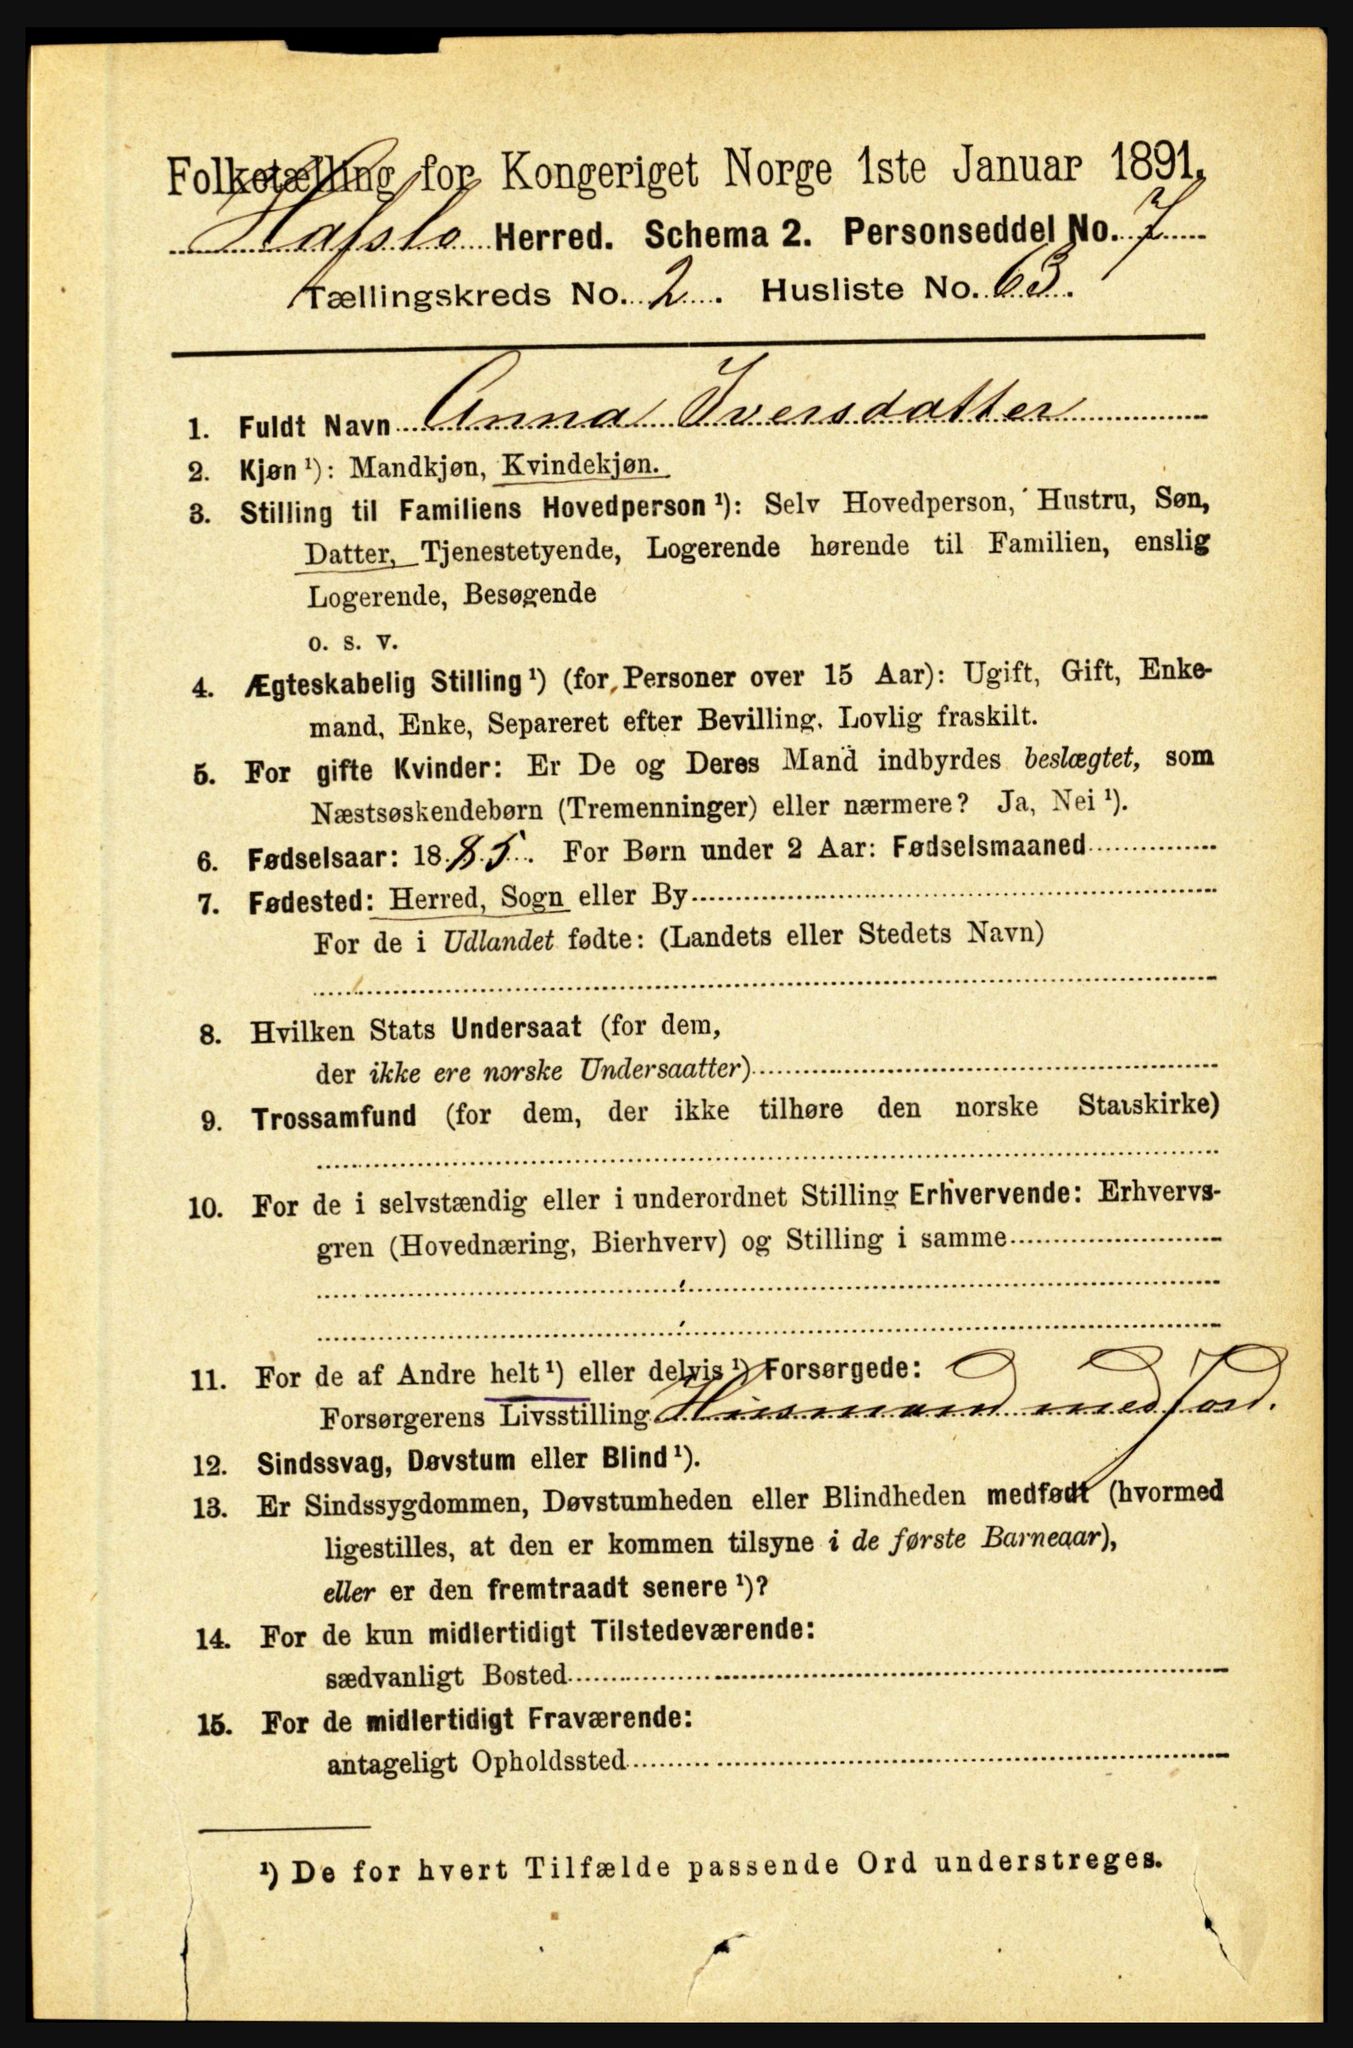 Folketælling for Kongeriget Norge 1ste Januar 1891.
Hafslo Herred. Schema 2. Personseddel No. 7
Tællingskreds No. 2. Husliste No. 63.
1. Fuldt Navn Anna Iversdatter
2. Kjøn ¹): Mandkjøn, Kvindekjøn.
3. Stilling til Familiens Hovedperson ¹): Selv Hovedperson, Hustru, Søn,
Datter, Tjenestetyende, Logerende hørende til Familien, enslig
Logerende, Besøgende
o. s. v.
4. Ægteskabelig Stilling ¹) (for Personer over 15 Aar): Ugift, Gift, Enke-
mand, Enke, Separeret efter Bevilling. Lovlig fraskilt.
5. For gifte Kvinder: Er De og Deres Mand indbyrdes beslægtet, som
Næstsøskendebørn (Tremenninger) eller nærmere? Ja, Nei ¹).
6. Fødselsaar: 1885. For Børn under 2 Aar: Fødselsmaaned
7. Fødested: Herred, Sogn eller By
For de i Udlandet fødte: (Landets eller Stedets Navn)
8. Hvilken Stats Undersaat (for dem,
der ikke ere norske Undersaatter)
9. Trossamfund (for dem, der ikke tilhøre den norske Statskirke)
10. For de i selvstændig eller i underordnet Stilling Erhvervende: Erhvervs-
gren (Hovednæring, Bierhverv) og Stilling i samme
11. For de af Andre helt ¹) eller delvis ¹) Forsørgede:
Forsørgerens Livsstilling Husmand med Jord.
12. Sindssvag, Døvstum eller Blind ¹).
13. Er Sindssygdommen, Døvstumheden eller Blindheden medfødt (hvormed
ligestilles, at den er kommen tilsyne i de første Barneaar),
eller er den fremtraadt senere ¹)?
14. For de kun midlertidigt Tilstedeværende:
sædvanligt Bosted
15. For de midlertidigt Fraværende:
antageligt Opholdssted
¹) De for hvert Tilfælde passende Ord understreges.